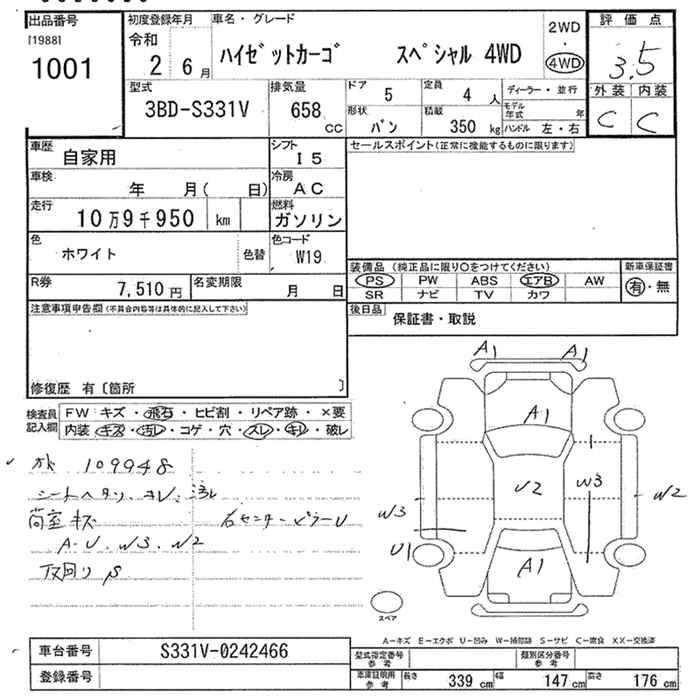 出品番号 初度登録年月 車名・グレード 評価点
[1988]
1001
令和 2 6月 ハイゼットカーゴ スペシャル 4WD 2WD・4WD 3.5
型式 3BD-S331V 排気量 658 cc ドア 5 定員 4 人 ディーラー・並行 外装 内装
形状 バン 積載 350 kg モデル年式 年 ハンドル 左・右 C C
車歴 自家用 シフト I5 セールスポイント(正常に機能するものに限ります)
車検 年 月( 日) 冷房 AC
走行 10万9千950 km 燃料 ガソリン
色 ホワイト 色替 色コード W19
装備品 (純正品に限り○をつけてください) 新車保証書
R券 7,510円 名変期限 月 日 PS PW ABS エアB AW 有・無
SR ナビ TV カワ
注意事項申告欄(不具合内容等は具体的に記入して下さい) 後日品 保証書・取説
修復歴 有〔箇所 〕
検査員記入欄 FW キズ・飛石・ヒビ割・リペア跡・×要
内装 キズ・汚レ・コゲ・穴・スレ・キレ・破レ
109948
シートヘタリ
荷室キズ 右センターピラーU
A・U、W3、W2
下回りS
A1 A1
A1
U2 W3 W2
W3
U1
A1
スペア
A-キズ E-エクボ U-凹み W-補修跡 S-サビ C-腐食 XX-交換済
車台番号 S331V-0242466 型式指定番号 参考 類別区分番号 参考
登録番号 車庫証明用 参考 長さ 339 cm 幅 147 cm 高さ 176 cm